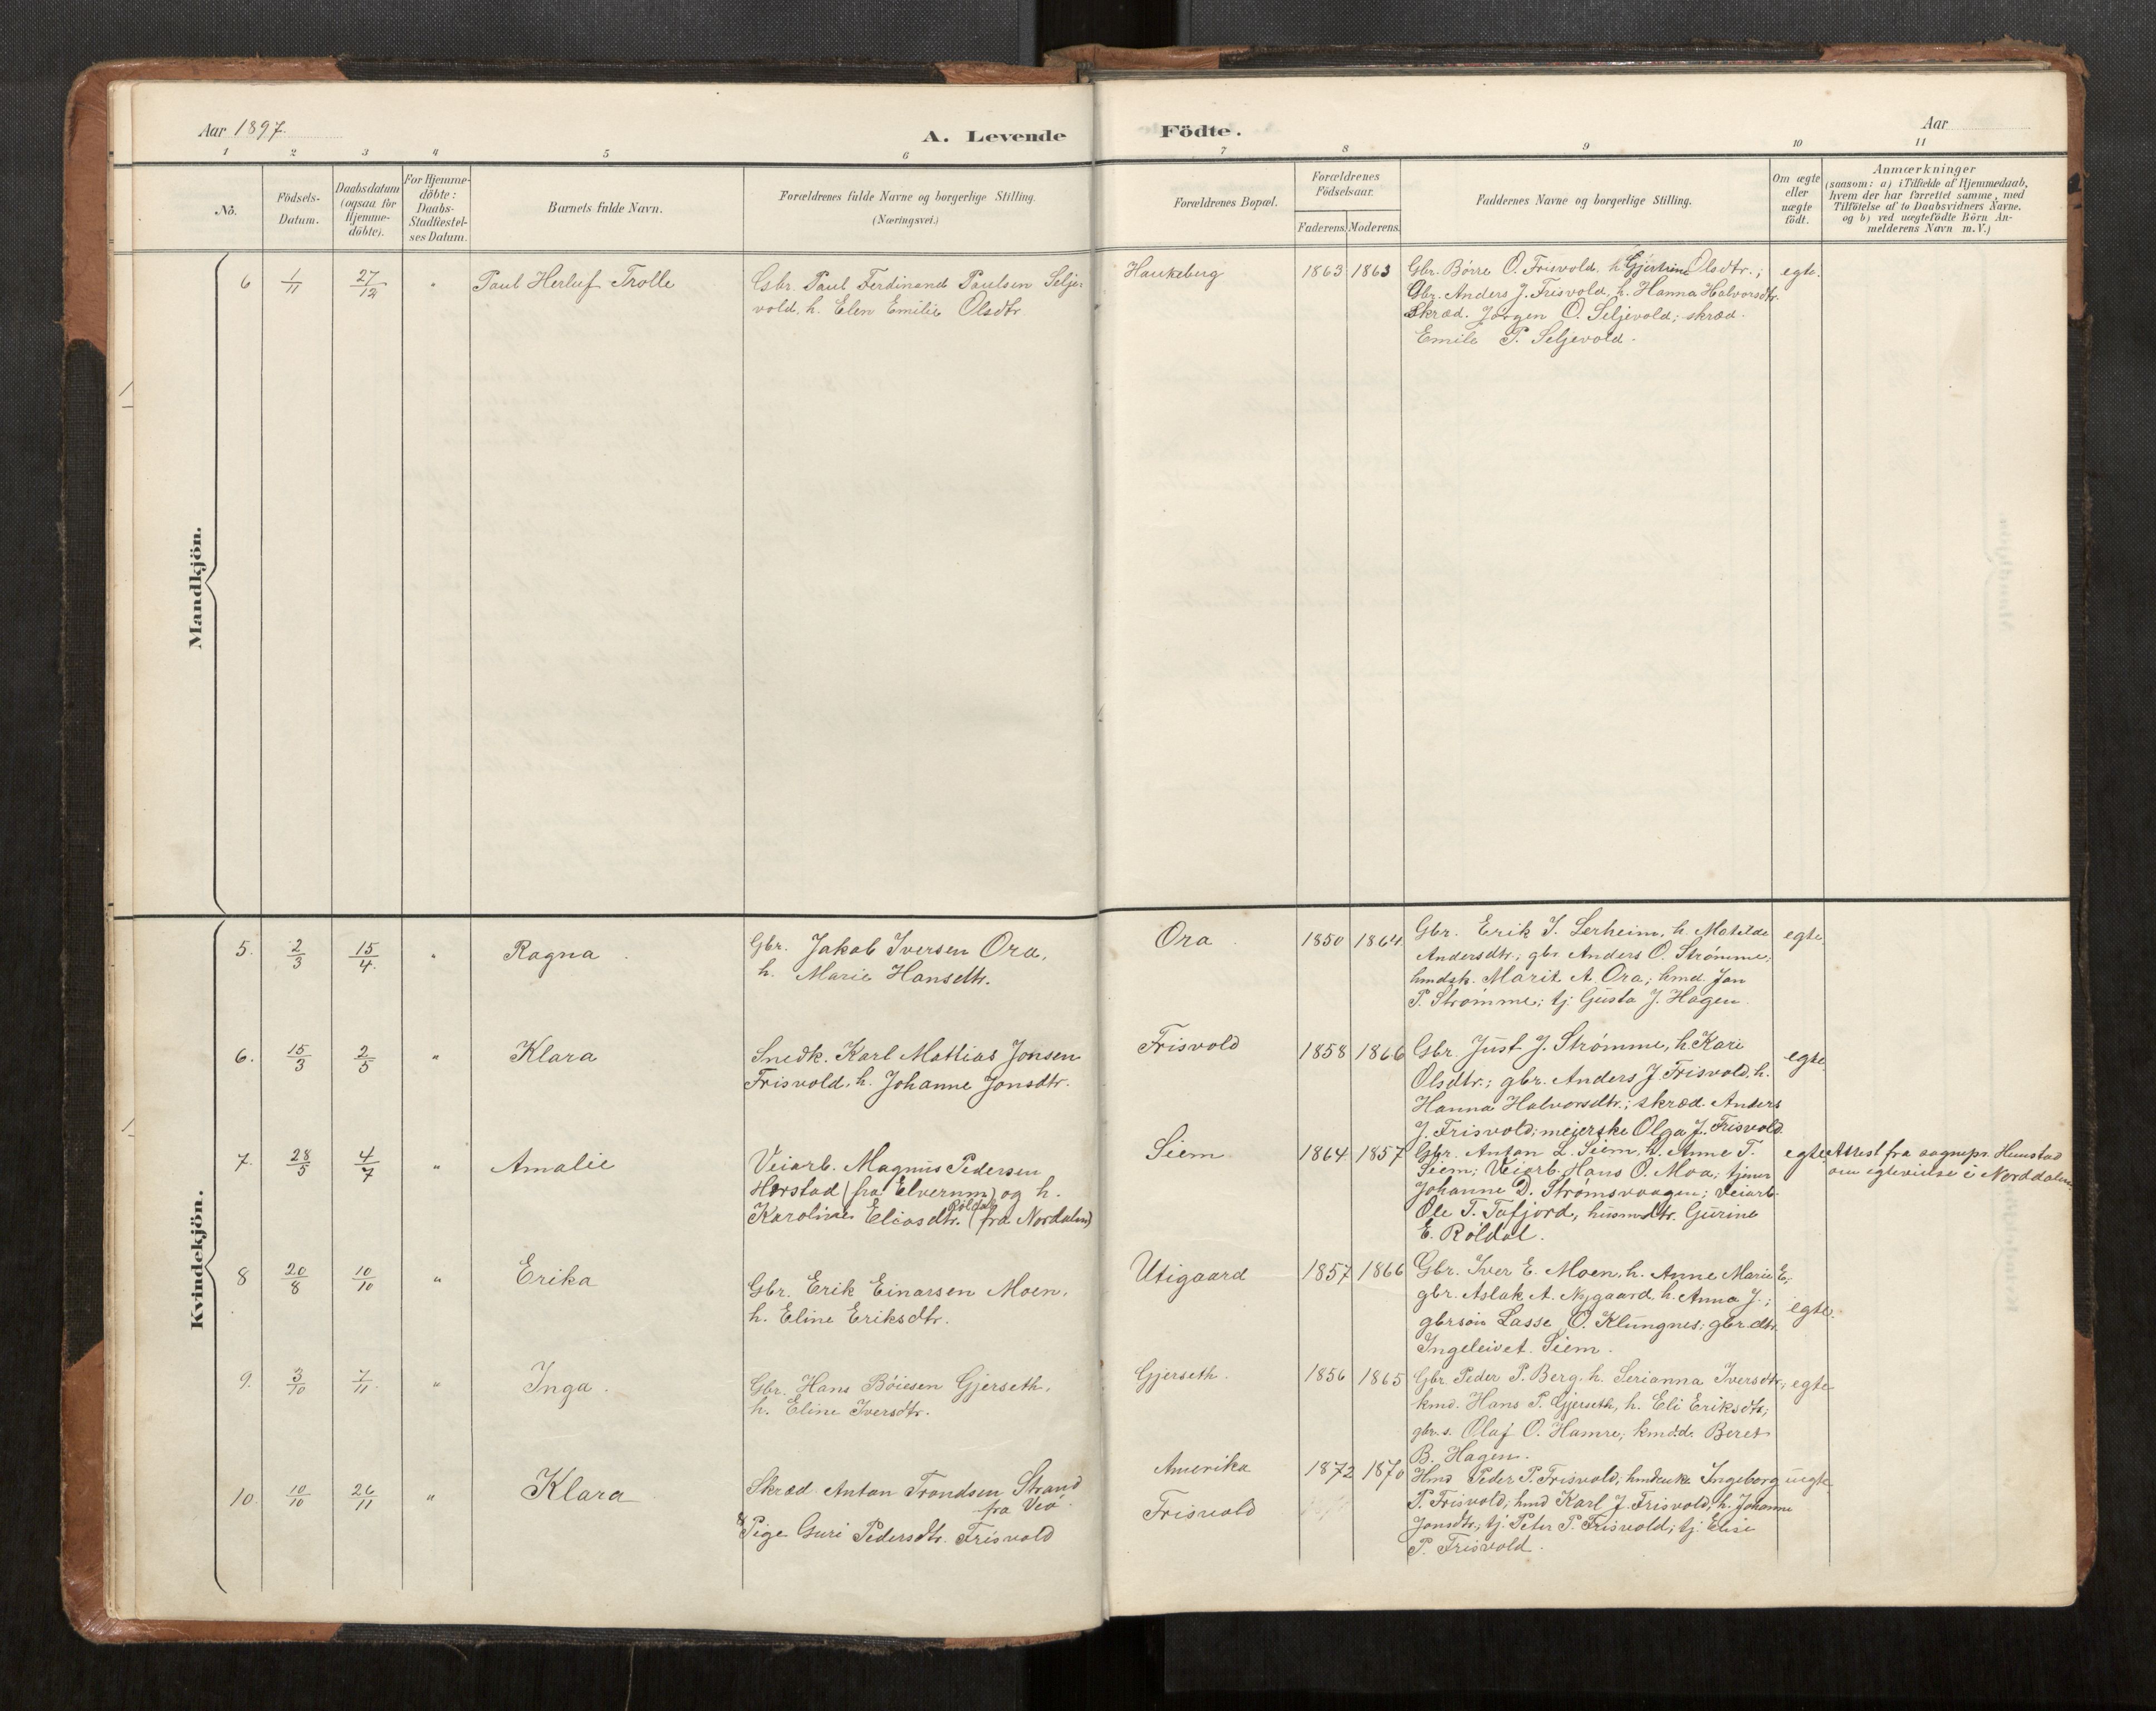 Aar 1897.
A. Levende Födte.
Aar
1 2 3 4 5 6 7 8 9 10 11
No.
Födsels-
Datum.
Daabsdatum
(ogsaa for
Hjemme-
döbte).
For Hjemme-
döbte:
Daabs-
Stadfæstel-
ses Datum.
Barnets fulde Navn.
Forældrenes fulde Navne og borgerlige Stilling.
(Næringsvei.)
Forældrenes Bopæl.
Forældrenes
Födselsaar.
Faderens. Moderens.
Faddernes Navne og borgerlige Stilling.
Om ægte
eller
uægte
födt.
Anmærkninger
(saasom: a) i Tilfælde af Hjemmedaab,
hvem der har forrettet samme, med
Tilföielse af to Daabsvidners Navne.
og b) ved uægtefödte Börn An-
melderens Navn m.V.)
Mandkjön.
6 1/11 27/12 " Paul Herluf Trolle
Gbr. Paul Ferdinand Paulsen Selje-
vold, h. Elen Emilie Olsdtr.
Haukeberg
1863 1863
Gbr. Börre O. Frisvold, h. Gjertine Olsdtr.;
Gbr. Anders J. Frisvold, h. Hanna Halvorsdtr.
Skræd. Jörgen O. Seljevold; skræd.
Emile P. Seljevold.
egte.
Kvindekjön.
5. 2/3 15/4. " Ragna
Gbr. Jakob Iversen Ora,
h. Marie Hansdtr.
Ora
1850 1864
Gbr. Erik I. Lerheim, h. Matilde
Andersdtr; gbr Anders O. Strømme;
hmdsk. Marit A. Ora; hmd Jon
P. Strømme; tj. Gusta J. Hagen.
egte
6. 15/3 2/5 " Klara
Snedk. Karl Mattias Jonsen
Frisvold, h. Johanne Jonsdtr.
Frisvold
1858 1866
Gbr. Just J. Strømme, h. Kari
Olsdtr.; gbr. Anders J. Frisvold, h.
Hanna Halvorsdtr.; skræd. Anders
J. Frisvold; meierske Olga J. Frisvold.
egte.
7. 28/5 4/7 " Amalie
Veiarb. Magnus Pedersen
Horstad (fra Elverum) og h.
Karoline Eliasdtr. Röldal (fra Nordalen)
Siem
1864 1857
Gbr. Anton L. Siem, h. Anne T.
Siem; Veiarb. Hans O. Moa; tjener
Johanne D. Strømsvaagen; Veiarb.
Ole T. Tafjord, husmdtr. Gurine
E. Röldal.
egte
Attest fra sognepr. Hunstad
om egtevielse i Norddalen.
8 20/8 10/10 " Erika
Gbr. Erik Einarsen Moen,
h. Eline Eriksdtr.
Utigaard
1857 1866
Gbr. Iver E. Moen, h. Anne Marie E.;
gbr. Aslak A. Nygaard, h. Anna J.;
gbrsön Lasse O. Klungnes; gbr.dtr.
Ingeleivet. Siem.
egte.
9. 3/10 7/11. " Inga.
Gbr. Hans Böiesen Gjerseth,
h. Eline Iversdtr.
Gjerseth.
1856 1865
Gbr. Peder P. Berg, h. Serianna Iversdtr;
kmd. Hans P. Gjerseth, h. Eli Eriksdtr;
gbr. s. Olaf O. Hamre; kmd.d. Beret
B. Hagen.
egte
10 10/10 26/11 " Klara
Skræd. Anton Trondsen Strand
fra Veö.
& Pige Guri Pedersdtr. Frisvold
Amerika
Frisvold
1872 1870
Hmd Peder P. Frisvold; hmdenke Ingeborg
P. Frisvold; hmd Karl J. Frisvold, h. Johanne
Jonsdtr.; tj. Peter P. Frisvold; tj. Elise
P. Frisvold.
uegte